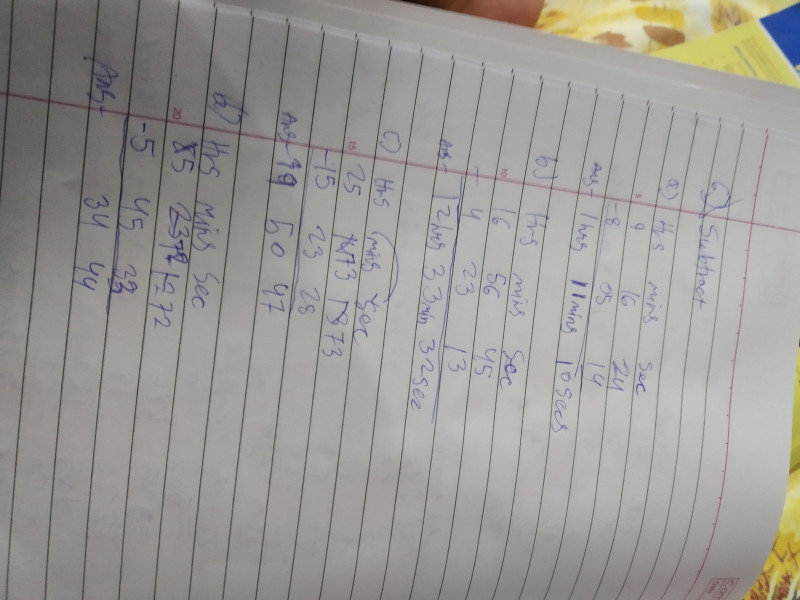 Q) Subtract
a) Hrs mins sec
9 16 24
-8 05 14
Ans- 1hrs 11mins 10secs
b) Hrs mins sec
16 56 45
- 4 23 13
Ans- 12hrs 33min 32sec
c) Hrs mins sec
25
-15 23 28
Ans- 50 47
Hrs mins sec
-5 45 28
Ans- 34 44